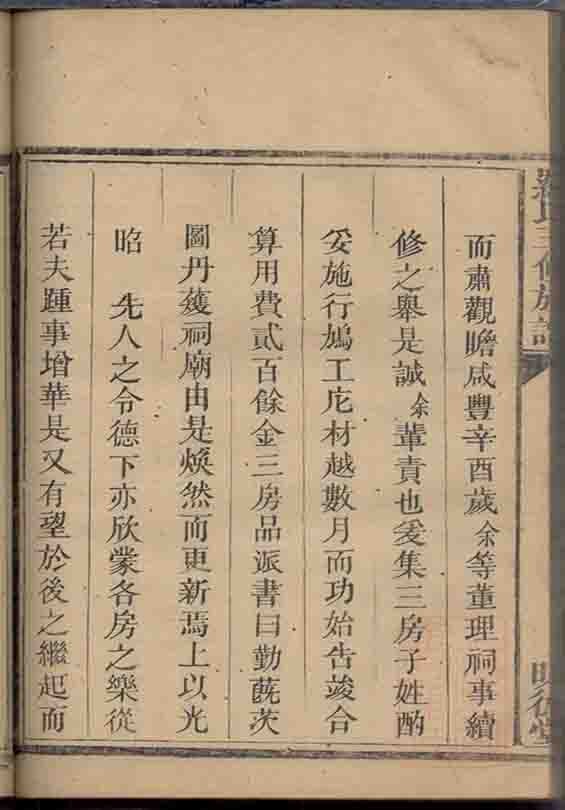 羅氏三修族譜
明德堂
而肅觀瞻咸豐辛酉歲余等董理祠事續
修之舉是誠余輩責也爰集三房子姓酌
妥施行鳩工庀材越數月而功始告竣合
算用費貳百餘金三房品派書曰勤蔇茨
圖丹雘祠廟由是煥然而更新焉上以光
昭 先人之令德下亦欣蒙各房之樂從
若夫踵事增華是又有望於後之繼起而